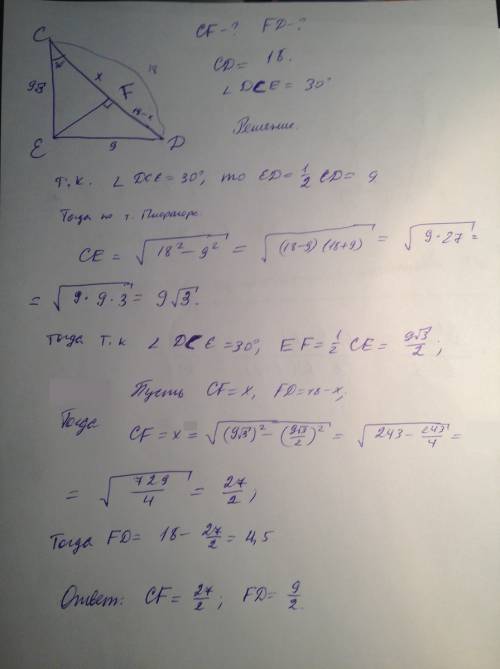 C
CF-? FD-?
x
18
F
18-x
9√3
E
9
D
CD= 18.
∠DCE= 30°
Решение.
т.к. ∠ DCE=30°, то ED=1/2 CD= 9
Тогда по т. Пифагора:
CE = √(18² - 9²) = √((18-9)(18+9)) = √(9·27) =
= √(9·9·3) = 9√3.
Тогда т.к ∠ DCE =30°, EF=1/2 CE= 9√3/2;
Пусть CF=x, FD=18-x;
Тогда
CF=x=√((9√3)²-(9√3/2)²)=√(243-243/4)=
= √(729/4) = 27/2;
Тогда FD= 18- 27/2=4,5
Ответ: CF= 27/2; FD= 9/2.